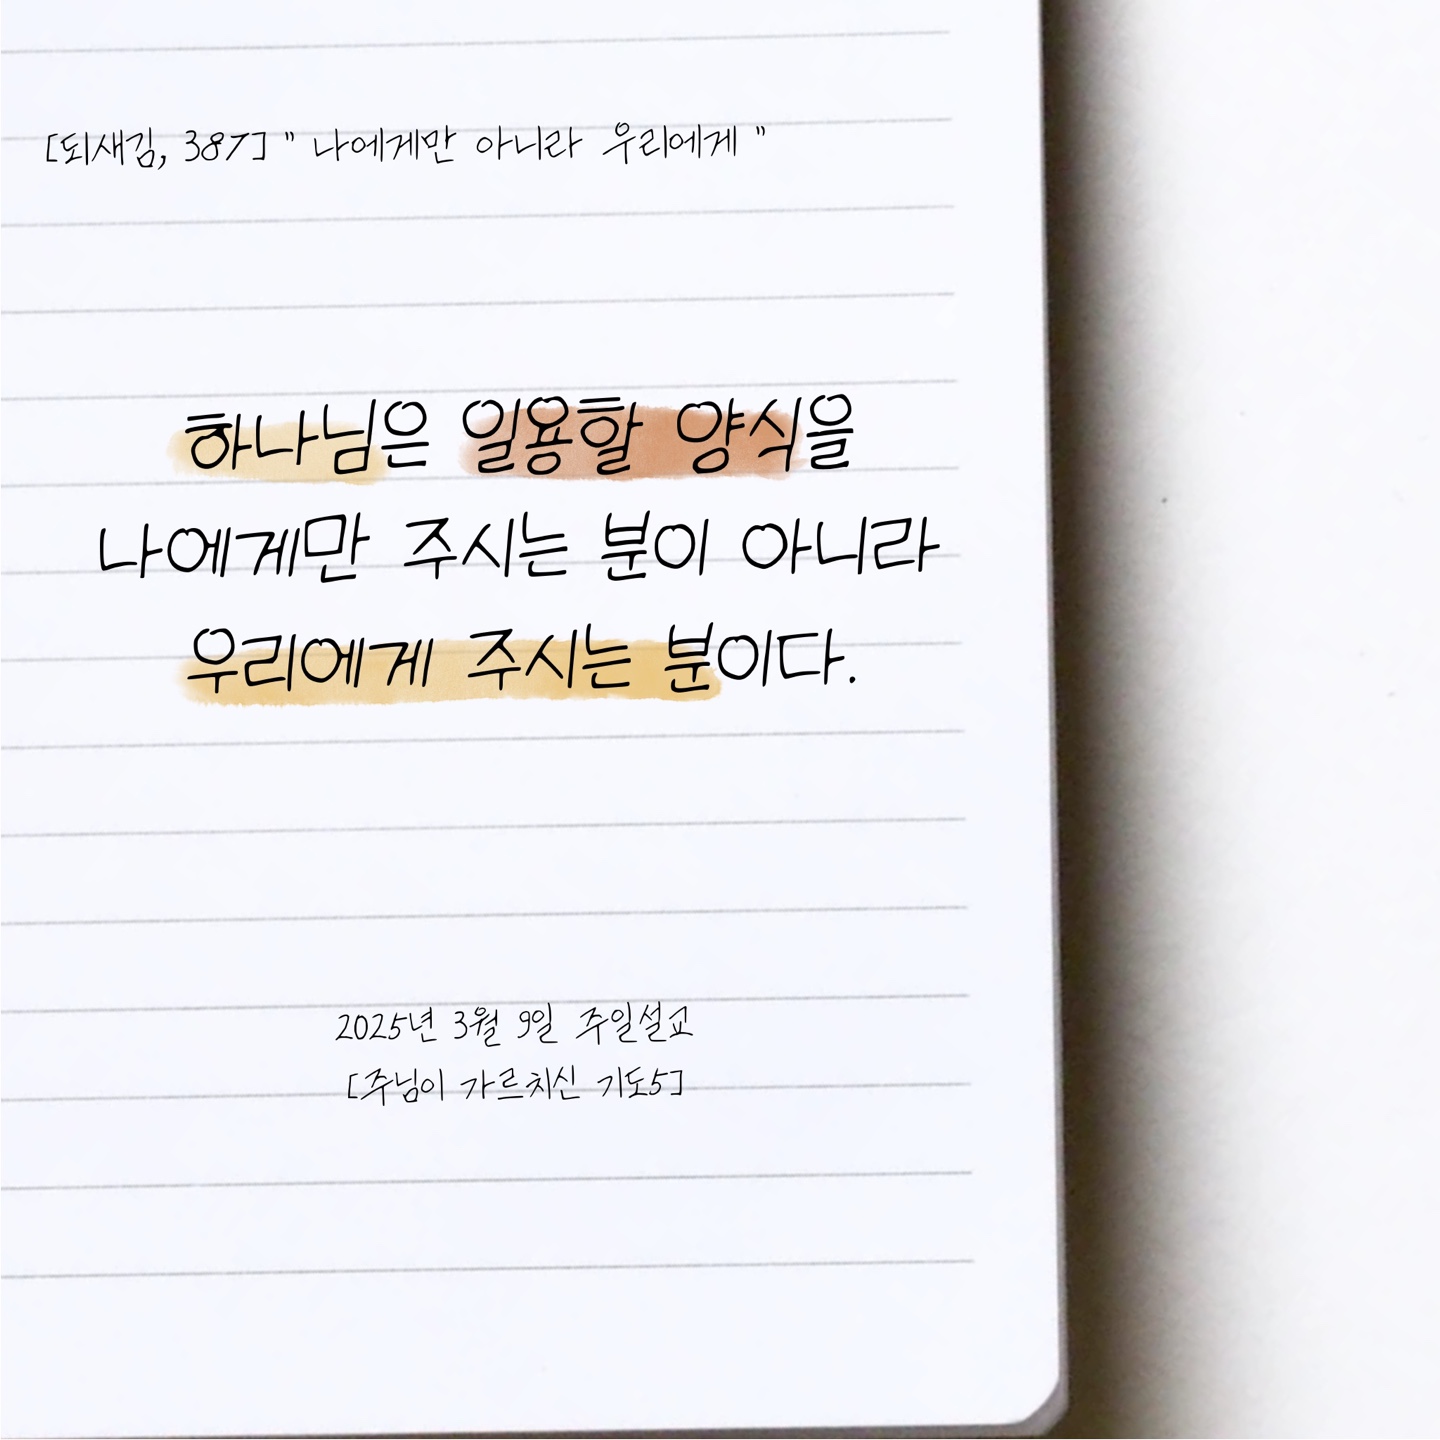 [되새김, 387] " 나에게만 아니라 우리에게 "
하나님은 일용할 양식을
나에게만 주시는 분이 아니라
우리에게 주시는 분이다.
2025년 3월 9일 주일설교
[주님이 가르치신 기도5]